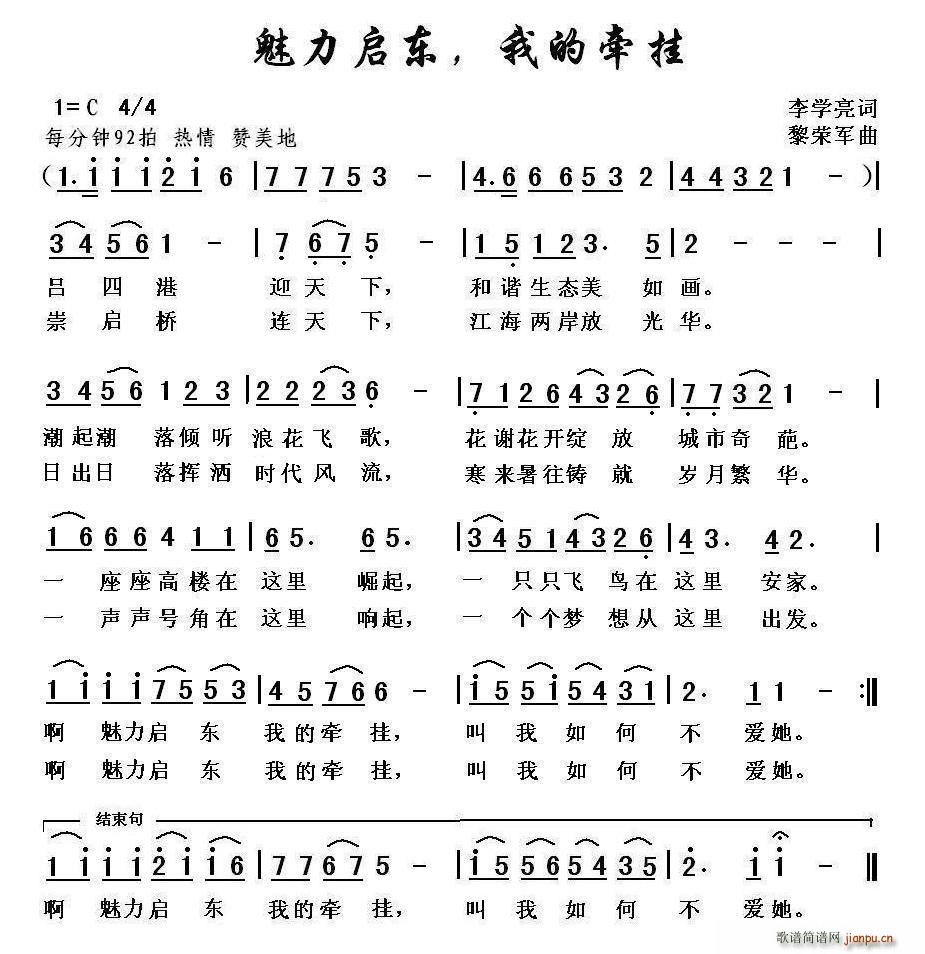 魅力启东，我的牵挂
1=C 4/4
李学亮词
每分钟92拍 热情 赞美地
黎荣军曲
(1. 1 1 1 2 1 6 | 7 7 7 5 3 - | 4. 6 6 6 5 3 2 | 4 4 3 2 1 - )|
3 4 5 6 1 - | 7 6 7 5 - | 1 5 1 2 3. 5 | 2 - - - |
吕四港 迎天下， 和谐生态美 如画。
崇启桥 连天下， 江海两岸放 光华。
3 4 5 6 1 2 3 | 2 2 2 2 3 6 - | 7 1 2 6 4 3 2 6 | 7 7 3 2 1 - |
潮起潮 落倾听 浪花飞 歌， 花谢花开绽 放 城市奇 葩。
日出日 落挥洒 时代风 流， 寒来暑往铸 就 岁月繁 华。
1 6 6 6 4 1 1 | 6 5. 6 5. | 3 4 5 1 4 3 2 6 | 4 3. 4 2. |
一 座座高楼在 这里 崛起， 一 只只飞 鸟在 这里 安家。
一 声声号角在 这里 响起， 一 个个梦 想从 这里 出发。
1 1 1 1 7 5 5 3 | 4 5 7 6 6 - | 1 5 5 1 5 4 3 1 | 2. 1 1 - :||
啊 魅力启 东 我的牵 挂， 叫 我 如 何 不 爱她。
啊 魅力启 东 我的牵 挂， 叫 我 如 何 不 爱她。
结束句
1 1 1 1 2 1 1 6 | 7 7 6 7 5 - | 1 5 5 6 5 4 3 5 | 2. 1 1 - ||
啊 魅力启 东 我的牵 挂， 叫 我 如 何 不 爱她。
歌谱简谱网 jianpu.cn